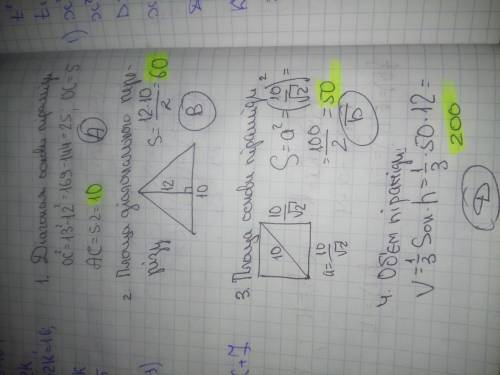 1. Діагональ основи піраміди
OC²=13²-12²=169-144=25, OC=5
AC=5·2=10 (А)
2. Площа діагонального пере-
різу
12
10
S=12·10/2=60
(В)
3. Площа основи піраміди
10
10/√2
a=10/√2
S=a²=(10/√2)²=
=100/2=50
(Б)
4. Об'єм піраміди:
V=1/3 Sосн·h=1/3·50·12=
200
(Д)
x+7